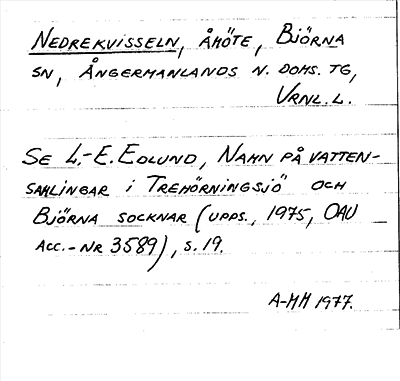 NEDREKVISSELN, ÅMÖTE, BJÖRNA
SN, ÅNGERMANLANDS N. DOMS. TG,
VRNL. L.
SE L.-E. EDLUND, NAMN PÅ VATTEN-
SAMLINGAR I TREHÖRNINGSJÖ OCH
BJÖRNA SOCKNAR (UPPS., 1975, OAU
ACC.-NR 3589), S. 19.
A-MM 1977.